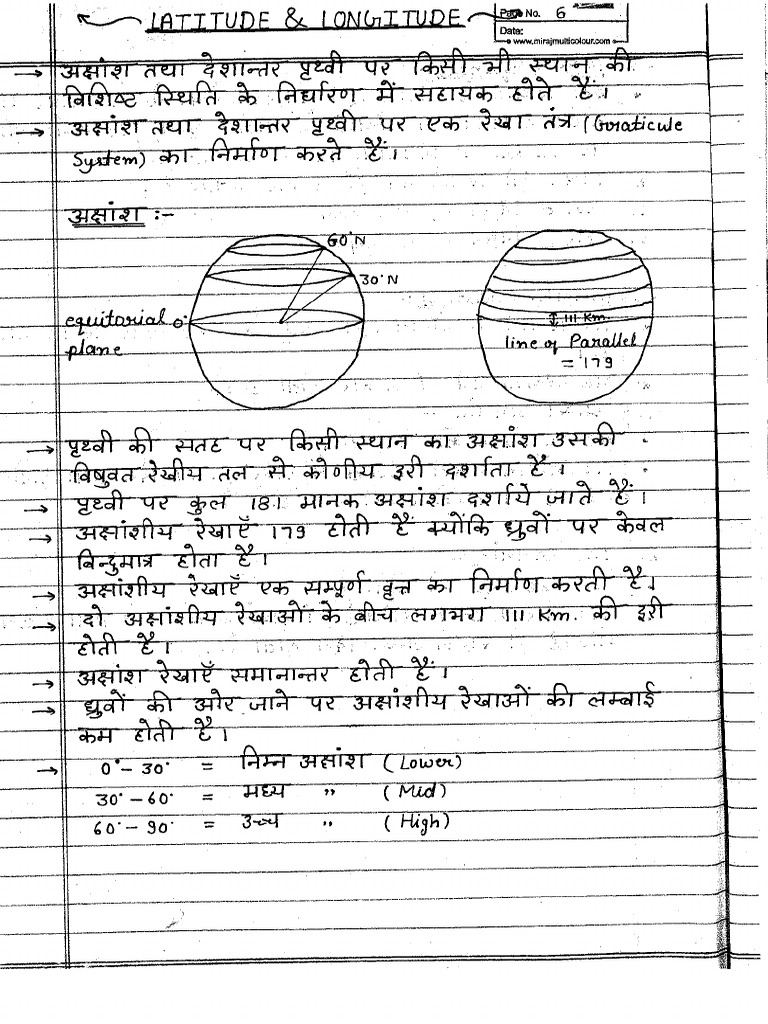 LATITUDE & LONGITUDE
Page No. 6
Date:
www.mirajmulticolour.com
→ अक्षांश तथा देशान्तर पृथ्वी पर किसी भी स्थान की
विशिष्ट स्थिति के निर्धारण में सहायक होते हैं।
→ अक्षांश तथा देशान्तर पृथ्वी पर एक रेखा तंत्र (Graticule
System) का निर्माण करते हैं।
अक्षांश :-
60°N
30°N
equitorial 0°
plane
111 Km.
line of Parallel
= 179
→ पृथ्वी की सतह पर किसी स्थान का अक्षांश उसकी
विषुवत रेखीय तल से कोणीय दूरी दर्शाता है।
→ पृथ्वी पर कुल 181 मानक अक्षांश दर्शाये जाते हैं।
→ अक्षांशीय रेखाएँ 179 होती हैं क्योंकि ध्रुवों पर केवल
बिन्दुमात्र होता है।
→ अक्षांशीय रेखाएँ एक सम्पूर्ण वृत्त का निर्माण करती है।
→ दो अक्षांशीय रेखाओं के बीच लगभग 111 Km. की दूरी
होती है।
→ अक्षांश रेखाएँ समानान्तर होती हैं।
→ ध्रुवों की ओर जाने पर अक्षांशीय रेखाओं की लम्बाई
कम होती है।
→ 0° - 30° = निम्न अक्षांश (Lower)
30° - 60° = मध्य " (Mid)
60° - 90° = उच्च " (High)